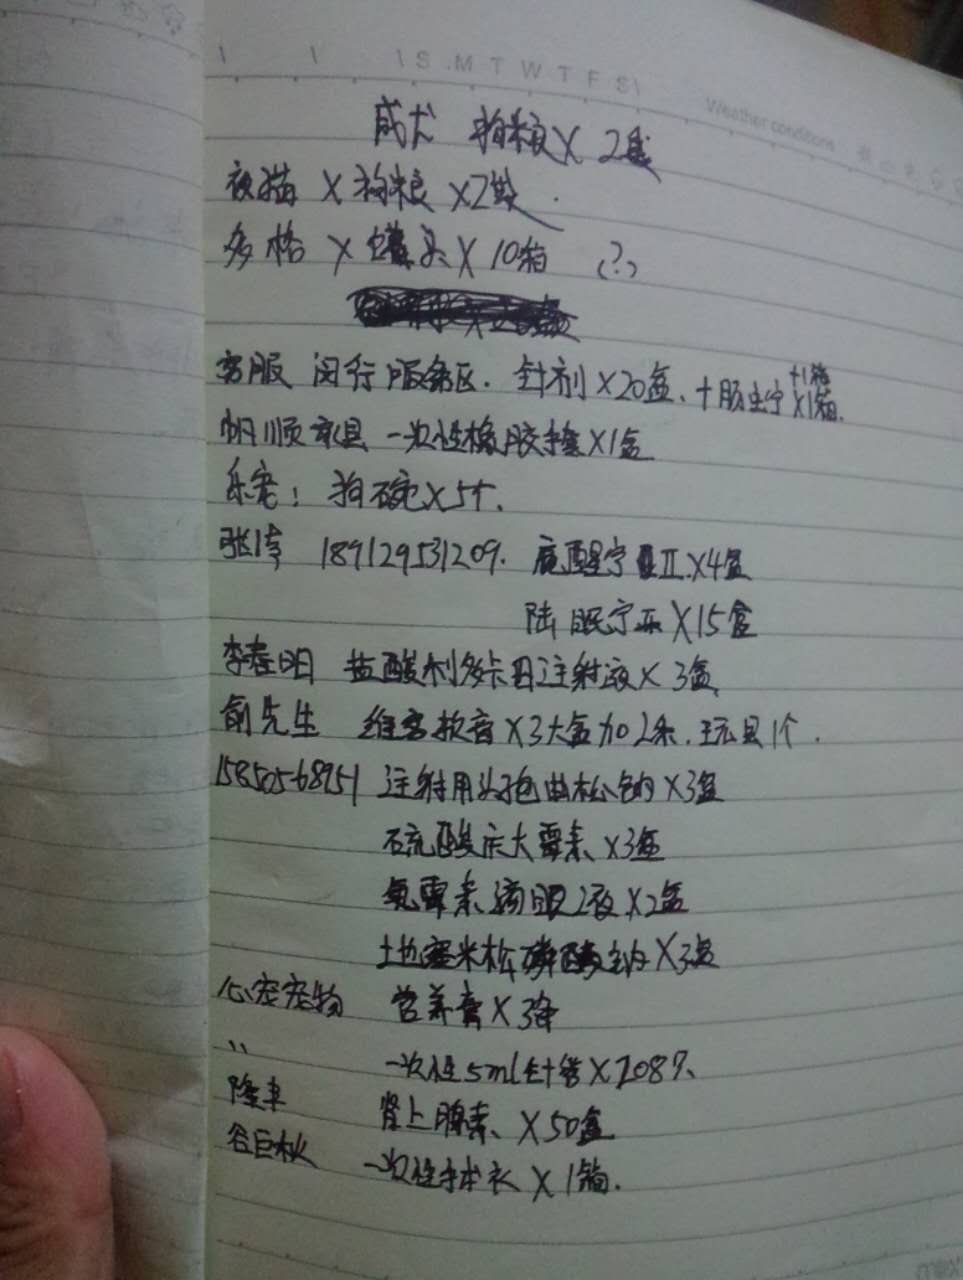 S M T W T F S
Weather conditions
成犬 狗粮 X 2袋
夜猫 X 狗粮 X2袋.
多格 X 罐头 X 10箱 (?)
客服 闵行服务区. 针剂X20盒、+肠虫宁X1箱.
+1箱
帆顺 一次性橡胶手套X1盒
乐宠: 狗碗X5个.
张 18912953209. 鹿醒宁 II.X4盒
陆眠宁 X15盒
李春明 盐酸利多卡因注射液X 3盒
俞先生 维 X3大盒加2条.玩具1个.
15850568951 注射用头孢曲松钠X3盒
硫酸庆大霉素X3盒
氯霉素滴眼液X2盒
土也塞米松磷酸钠X3盒
心宠宠物 营养膏X3
〃 一次性5ml针管X208
隆 肾上腺素 X50盒
谷巨秋 一次性手术衣 X 1箱.